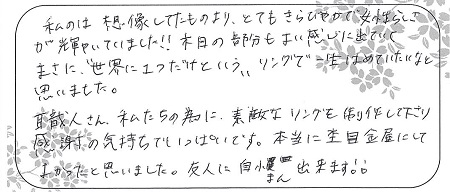 私のは想像してたものより、とてもきらびやかで女性らしさ
が輝いていました!! 木目の部分もよい感じに出ていて
まさに、"世界に1つだけという〟リングで一生はめていたいなと
思いました。
職人さん、私たちの為に、素敵なリングを御作して下さり
感謝の気持ちでいっぱいです。本当に杢目金屋にして
よかったと思いました。友人に自慢 まん 出来ます!!